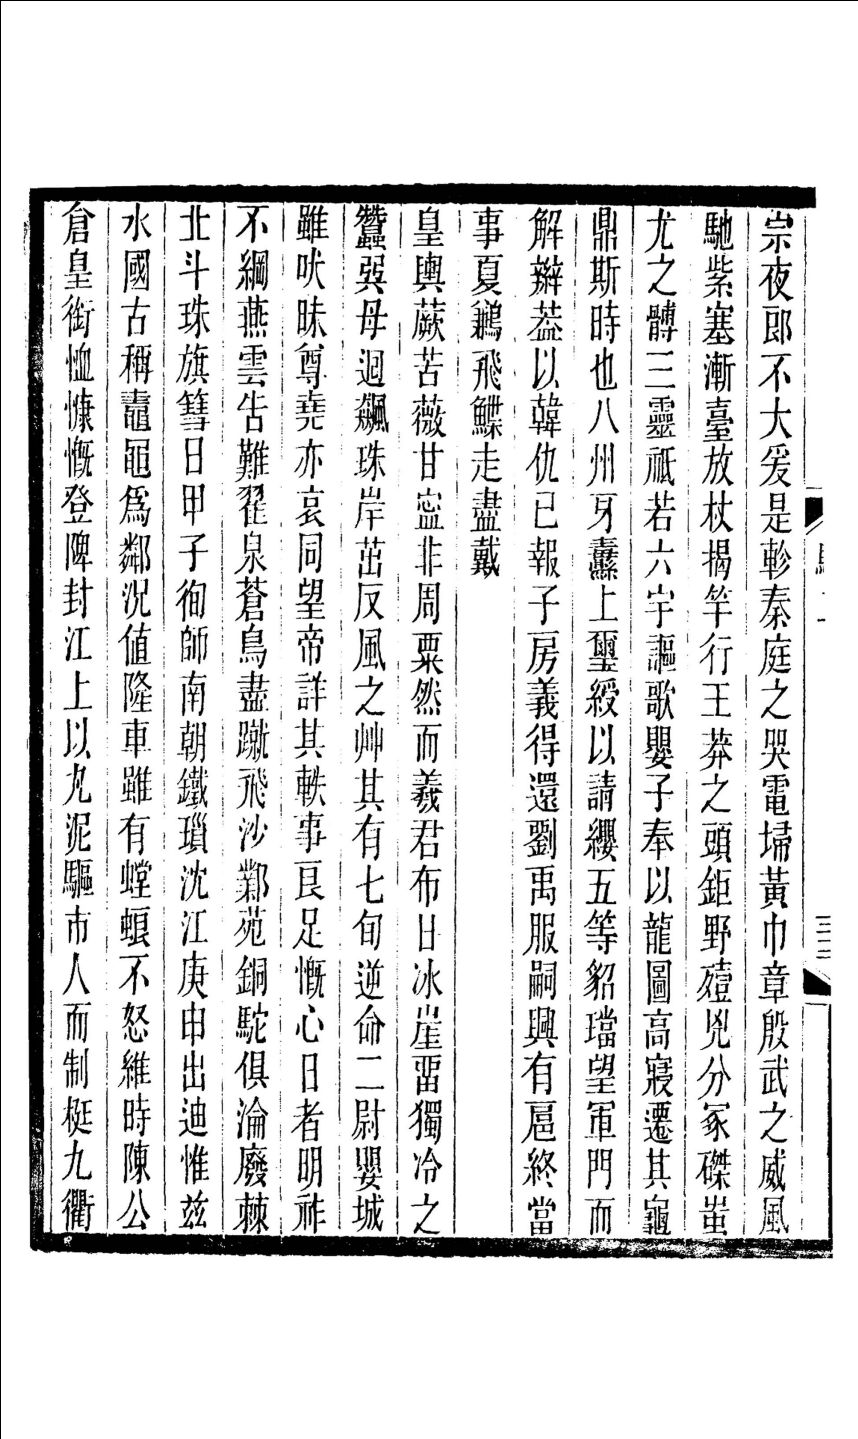 宗夜郎不大爰是軫秦庭之哭電埽黃巾章殷武之威風
馳紫塞漸臺放杖揭竿行王莽之頭鉅野殪兇分冢磔蚩
尤之髆三靈祗若六宇謳歌嬰子奉以龍圖高寢遷其龜
鼎斯時也八州牙纛上璽綬以請纓五等貂璫望軍門而
解辮葢以韓仇已報子房義得還劉禹服嗣興有扈終當
事夏鶼飛鰈走盡戴
皇輿蕨苦薇甘寍非周粟然而羲君布日冰崖畱獨冷之
蠶巽母迴飆珠岸茁反風之艸其有七旬逆命二尉嬰城
雖吠昧尊堯亦哀同望帝詳其軼事良足慨心日者明祚
不綱燕雲告難翟泉蒼鳥盡蹴飛沙鄴苑銅駝俱淪廢棘
北斗珠旗簪日甲子徇師南朝鐵瑣沈江庚申出迪惟兹
水國古稱鼃黽爲鄰況値隆車雖有螳蜋不怒維時陳公
倉皇銜恤慷慨登陴封江上以丸泥驅市人而制梃九衢
三二